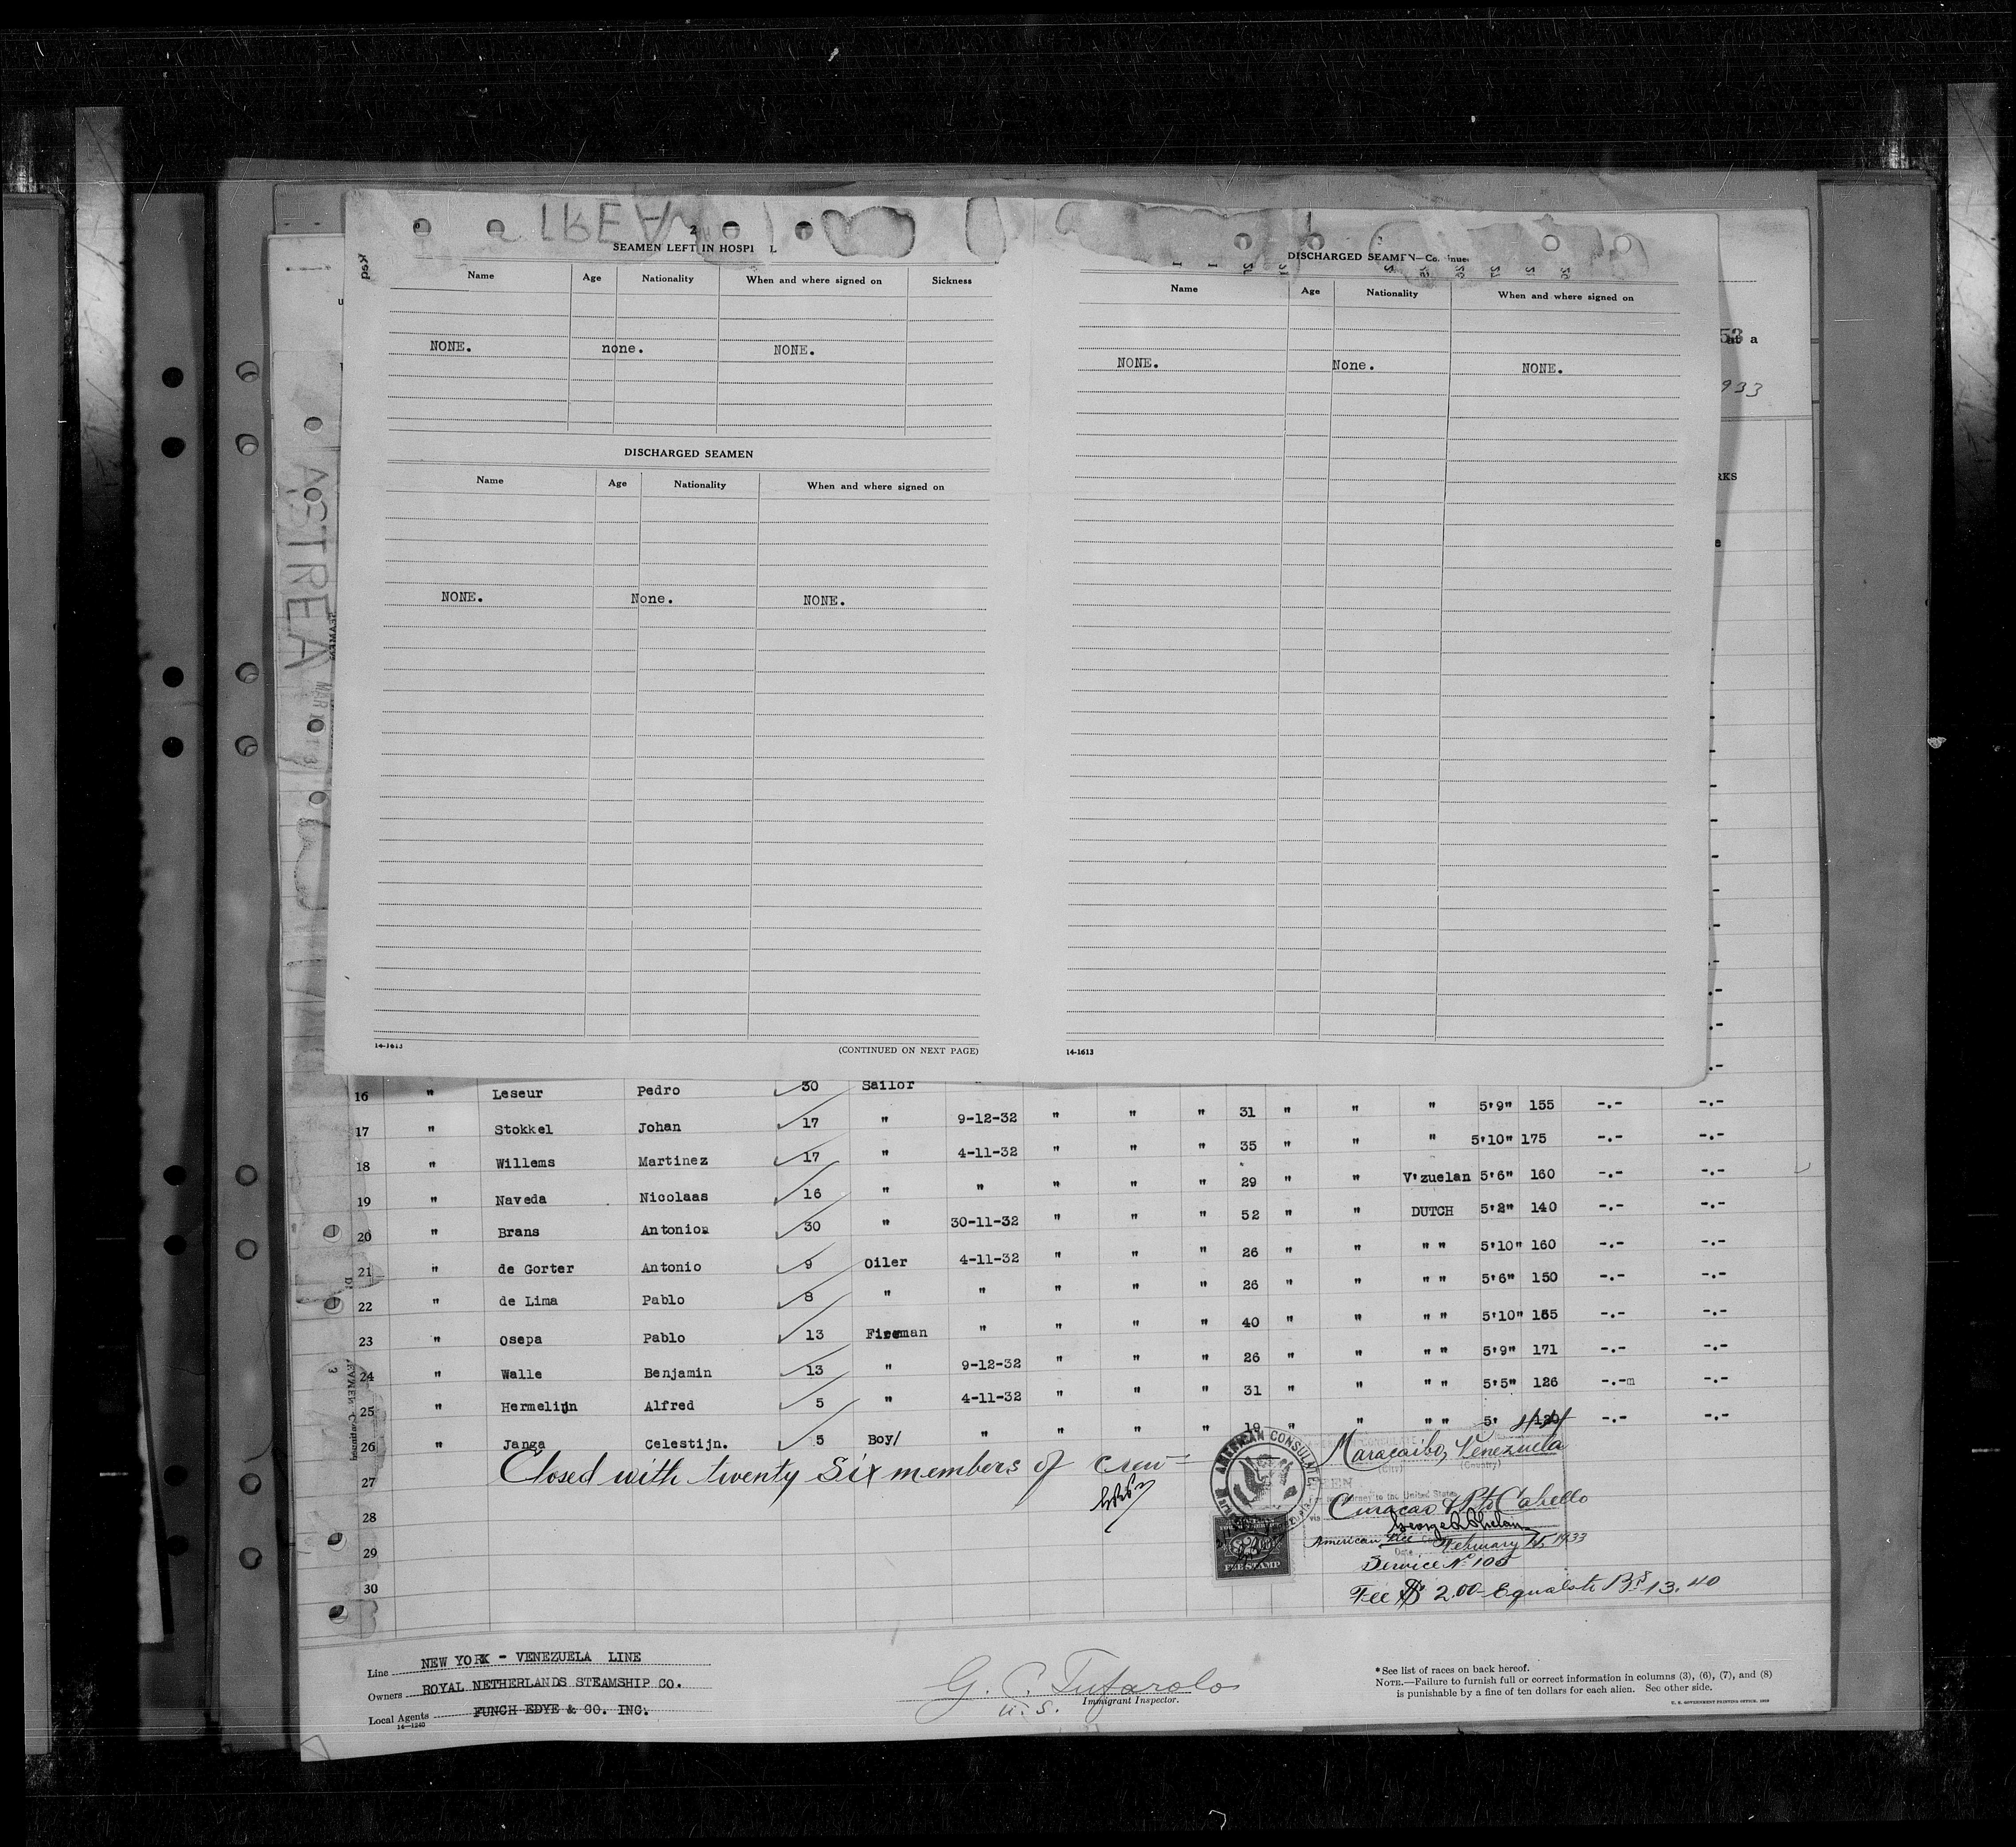 2
SEAMEN LEFT IN HOSPI L
Name Age Nationality When and where signed on Sickness
NONE. none. NONE.
DISCHARGED SEAMEN
Name Age Nationality When and where signed on
NONE. None. NONE.
14-1613
(CONTINUED ON NEXT PAGE)
DISCHARGED SEAMEN—Co inue
Name Age Nationality When and where signed on
NONE. None. NONE.
14-1613
53 at a
933
RKS
ASTREA
16 " Leseur Pedro 30 Sailor
17 " Stokkel Johan 17 " 9-12-32 " " " 31 " " " 5'9" 155 -.- -.-
18 " Willems Martinez 17 " 4-11-32 " " " 35 " " " 5'10" 175 -.- -.-
19 " Naveda Nicolaas 16 " " " " " 29 " " V'zuelan 5'6" 160 -.- -.-
20 " Brans Antonio 30 " 30-11-32 " " " 52 " " DUTCH 5'2" 140 -.- -.-
21 " de Gorter Antonio 9 Oiler 4-11-32 " " " 26 " " " " 5'10" 160 -.- -.-
22 " de Lima Pablo 8 " " " " " 26 " " " " 5'6" 150 -.- -.-
23 " Osepa Pablo 13 Fireman " " " " 40 " " " " 5'10" 165 -.- -.-
24 " Walle Benjamin 13 " 9-12-32 " " " 26 " " " " 5'9" 171 -.- -.-
25 " Hermelijn Alfred 5 " 4-11-32 " " " 31 " " " " 5'5" 126 -.-m -.-
26 " Janga Celestijn. 5 Boy/ " " " " 19 " " " " 5' -.- -.-
27 Closed with twenty Six members of crew
28
29
30
AMERICAN CONSULATE
Maracaibo, Venezuela
(City) (Country)
journey to the United States
via Curacao & Pto Cabello
George R Phelan
American Vice
Date February 15, 1933
Service No 105
Fee $ 2.00 Equals to Bs 13.40
FEE STAMP
Line NEW YORK - VENEZUELA LINE
Owners ROYAL NETHERLANDS STEAMSHIP CO.
Local Agents FUNCH EDYE & CO. INC.
14—1240
G. C. Tufarolo
U.S. Immigrant Inspector.
*See list of races on back hereof.
NOTE.—Failure to furnish full or correct information in columns (3), (6), (7), and (8)
is punishable by a fine of ten dollars for each alien. See other side.
U. S. GOVERNMENT PRINTING OFFICE: 1929